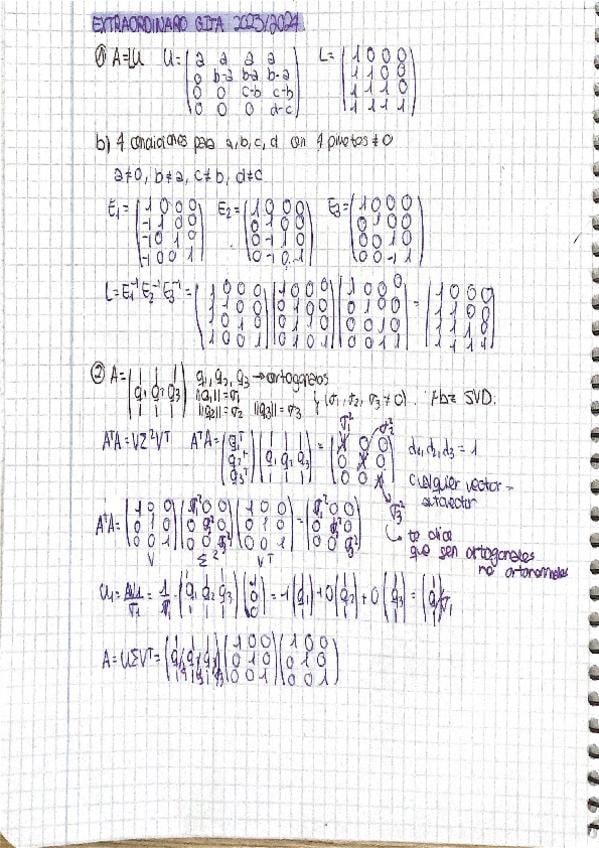 EXTRAORDINARIO GITA 2023/2024
① A=LU U= (a a a a / 0 b-a b-a b-a / 0 0 c-b c-b / 0 0 0 d-c) L= (1 0 0 0 / 1 1 0 0 / 1 1 1 0 / 1 1 1 1)
b) 4 condiciones para a, b, c, d con 4 pivotes ≠ 0
a≠0, b≠a, c≠b, d≠c
E₁= (1 0 0 0 / -1 1 0 0 / -1 0 1 0 / -1 0 0 1) E₂= (1 0 0 0 / 0 1 0 0 / 0 -1 1 0 / 0 -1 0 1) E₃= (1 0 0 0 / 0 1 0 0 / 0 0 1 0 / 0 0 -1 1)
L=E₁⁻¹E₂⁻¹E₃⁻¹= (1 0 0 0 / 1 1 0 0 / 1 0 1 0 / 1 0 0 1) (1 0 0 0 / 0 1 0 0 / 0 1 1 0 / 0 1 0 1) (1 0 0 0 / 0 1 0 0 / 0 0 1 0 / 0 0 1 1) = (1 0 0 0 / 1 1 0 0 / 1 1 1 0 / 1 1 1 1)
② A= (q₁ q₂ q₃) q₁, q₂, q₃ → ortogonales
||q₁||=σ₁ ||q₂||=σ₂ ||q₃||=σ₃ } (σ₁, σ₂, σ₃ ≠ 0). Haz SVD:
AᵀA=VΣ²Vᵀ AᵀA= (q₁ᵀ / q₂ᵀ / q₃ᵀ) (q₁ q₂ q₃) = (σ₁² 0 0 / 0 σ₂² 0 / 0 0 σ₃²) d₁, d₂, d₃ = 1
cualquier vector = autovector
↳ te dice
que sen ortogonales
no ortonormales
AᵀA= (1 0 0 / 0 1 0 / 0 0 1) (σ₁² 0 0 / 0 σ₂² 0 / 0 0 σ₃²) (1 0 0 / 0 1 0 / 0 0 1) = (σ₁² 0 0 / 0 σ₂² 0 / 0 0 σ₃²)
V Σ² Vᵀ
U₁= AV₁/σ₁ = 1/σ₁ · (q₁ q₂ q₃) (1 / 0 / 0) = 1 (q₁) + 0 (q₂) + 0 (q₃) = (q₁)/σ₁
A=UΣVᵀ= (q₁/σ₁ q₂/σ₂ q₃/σ₃) (1 0 0 / 0 1 0 / 0 0 1) (1 0 0 / 0 1 0 / 0 0 1)